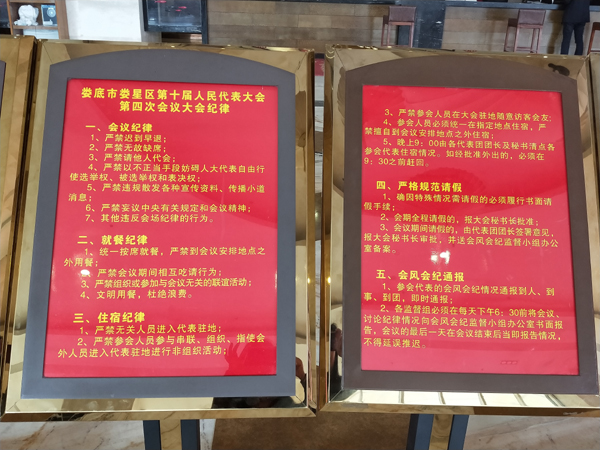 娄底市娄星区第十届人民代表大会
第四次会议大会纪律
一、会议纪律
1、严禁迟到早退;
2、严禁无故缺席;
3、严禁请他人代会;
4、严禁以不正当手段妨碍人大代表自由行
使选举权、被选举权和表决权;
5、严禁违规散发各种宣传资料、传播小道
消息;
6、严禁妄议中央有关规定和会议精神;
7、其他违反会场纪律的行为。
二、就餐纪律
1、统一按席就餐,严禁到会议安排地点之
外用餐;
2、严禁会议期间相互吃请行为;
3、严禁组织或参加与会议无关的联谊活动;
4、文明用餐,杜绝浪费。
三、住宿纪律
1、严禁无关人员进入代表驻地;
2、严禁参会人员参与串联、组织、指使会
外人员进入代表驻地进行非组织活动;
3、严禁参会人员在大会驻地随意访客会友;
4、参会人员必须统一在指定地点住宿,严
禁擅自到会议安排地点之外住宿;
5、晚上9:00由各代表团团长及秘书清点各
参会代表住宿情况。如经批准外出的,必须在
9:30之前赶回。
四、严格规范请假
1、确因特殊情况需请假的必须履行书面请
假手续;
2、会期全程请假的,报大会秘书长批准;
3、会议期间请假的,由代表团团长签署意见,
报大会秘书长审批,并送会风会纪监督小组办公
室备案。
五、会风会纪通报
1、参会代表的会风会纪情况通报到人、到
事、到团,即时通报;
2、各监督组必须在每天下午6:30前将会议、
讨论纪律情况向会风会纪监督小组办公室书面报
告,会议的最后一天在会议结束后当即报告情况,
不得延误推迟。